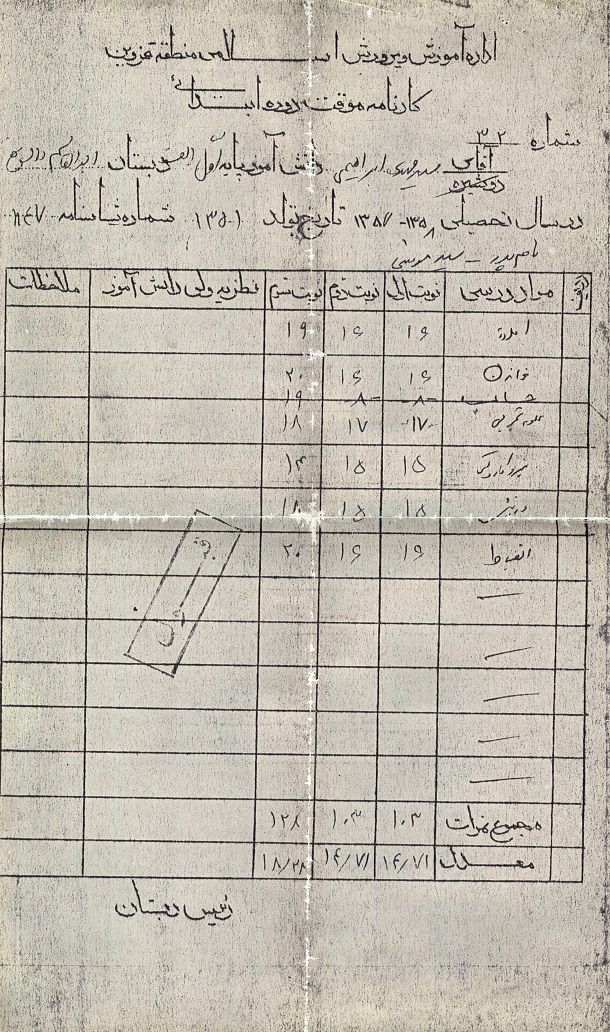 اداره آموزش و پرورش اسلامی منطقه قزوین
کارنامه موقت دوره ابتدائی
شماره ۳۲
آقای
دوشیزه
سید مهدی ابراهیمی دانش آموز پایه اول دبستان
در سال تحصیلی تاریخ تولد ۱۳۵۱ شماره شناسنامه
نام پدر - سید مرتضی
ردیف مواد درسی نوبت اول نوبت دوم نوبت سوم نظریه ولی دانش آموز ملاحظات
املاء ۱۶ ۱۶ ۱۹
۱۶ ۱۶ ۲۰
حساب ۸ ۸ ۱۹
علوم تجربی ۱۷ ۱۷ ۱۸
۱۵ ۱۵ ۱۴
ورزش ۱۵ ۱۵ ۱۸
انضباط ۱۶ ۱۶ ۲۰
قبول
مجموع نمرات ۱۰۳ ۱۰۳ ۱۲۸
معدل ۱۴/۷۱ ۱۴/۷۱ ۱۸/۲۸
رئیس دبستان